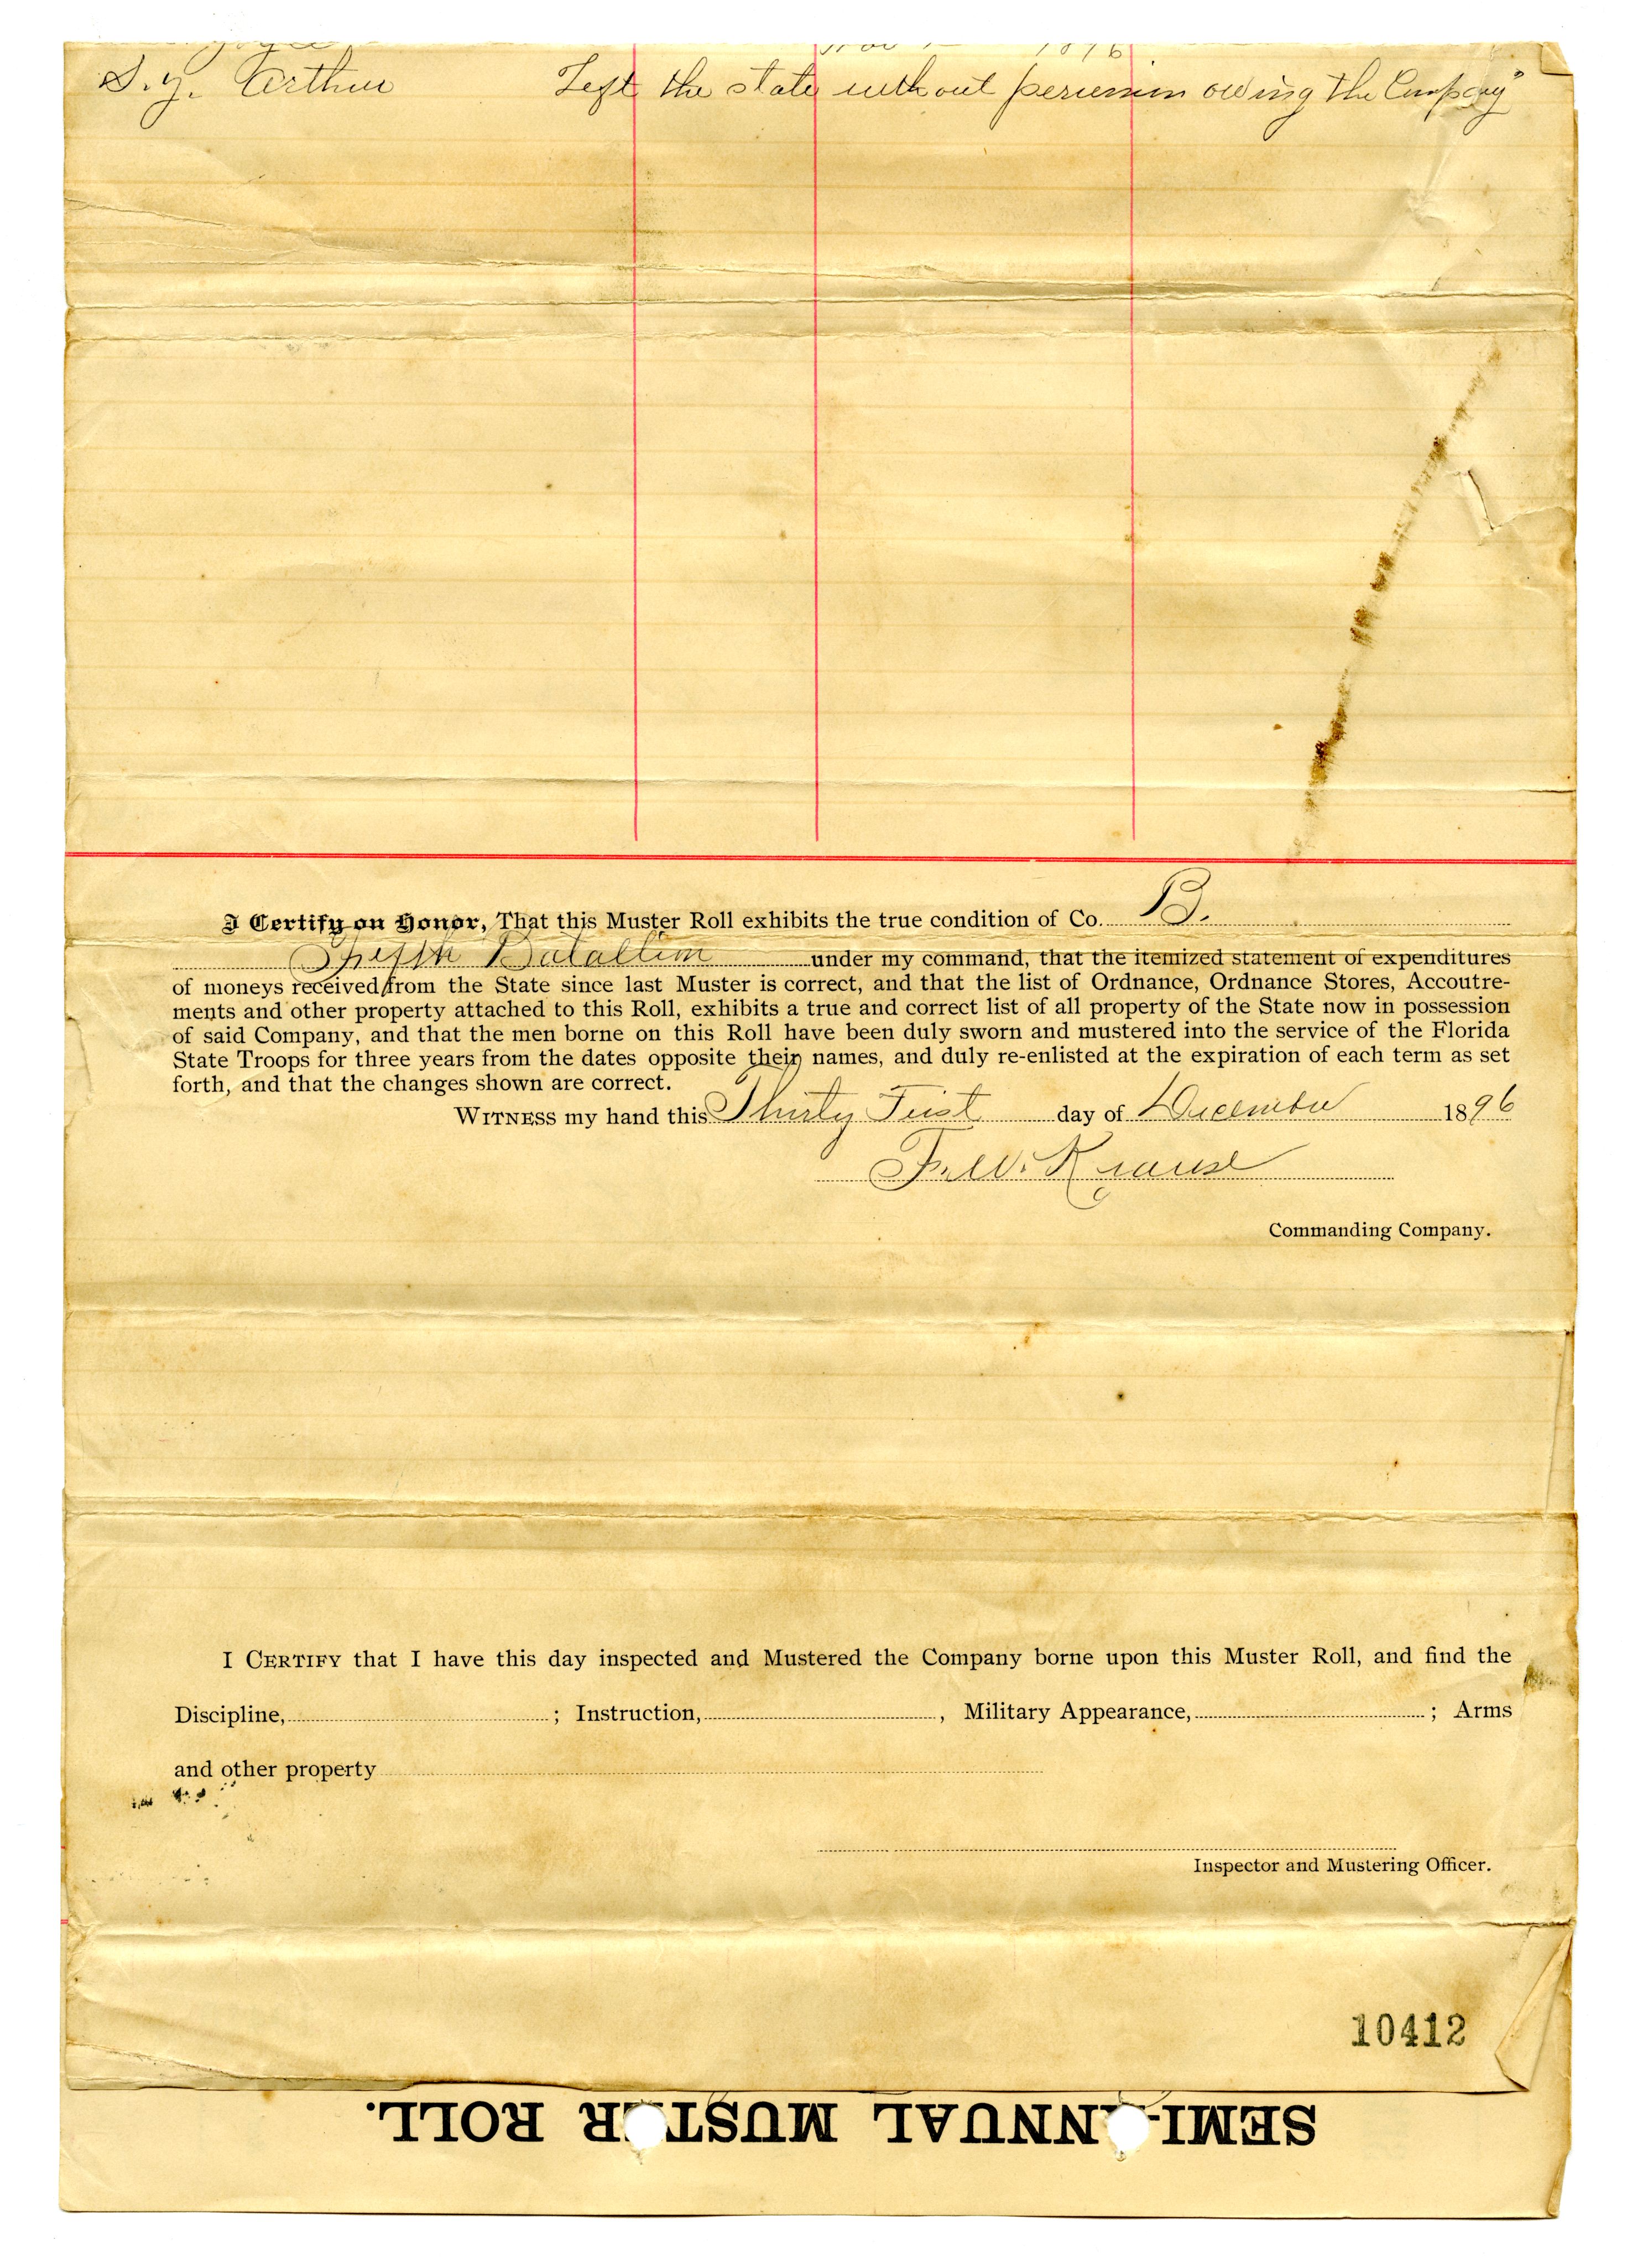 1896
S. Y. Arthur Left the state without permission owing the Company
I Certify on Honor, That this Muster Roll exhibits the true condition of Co. B.
Fifth Batallion under my command, that the itemized statement of expenditures
of moneys received from the State since last Muster is correct, and that the list of Ordnance, Ordnance Stores, Accoutre-
ments and other property attached to this Roll, exhibits a true and correct list of all property of the State now in possession
of said Company, and that the men borne on this Roll have been duly sworn and mustered into the service of the Florida
State Troops for three years from the dates opposite their names, and duly re-enlisted at the expiration of each term as set
forth, and that the changes shown are correct.
WITNESS my hand this Thirty First day of December 1896
F. W. Krause
Commanding Company.
I CERTIFY that I have this day inspected and Mustered the Company borne upon this Muster Roll, and find the
Discipline, ; Instruction, , Military Appearance, ; Arms
and other property
Inspector and Mustering Officer.
10412
SEMI-ANNUAL MUSTER ROLL.